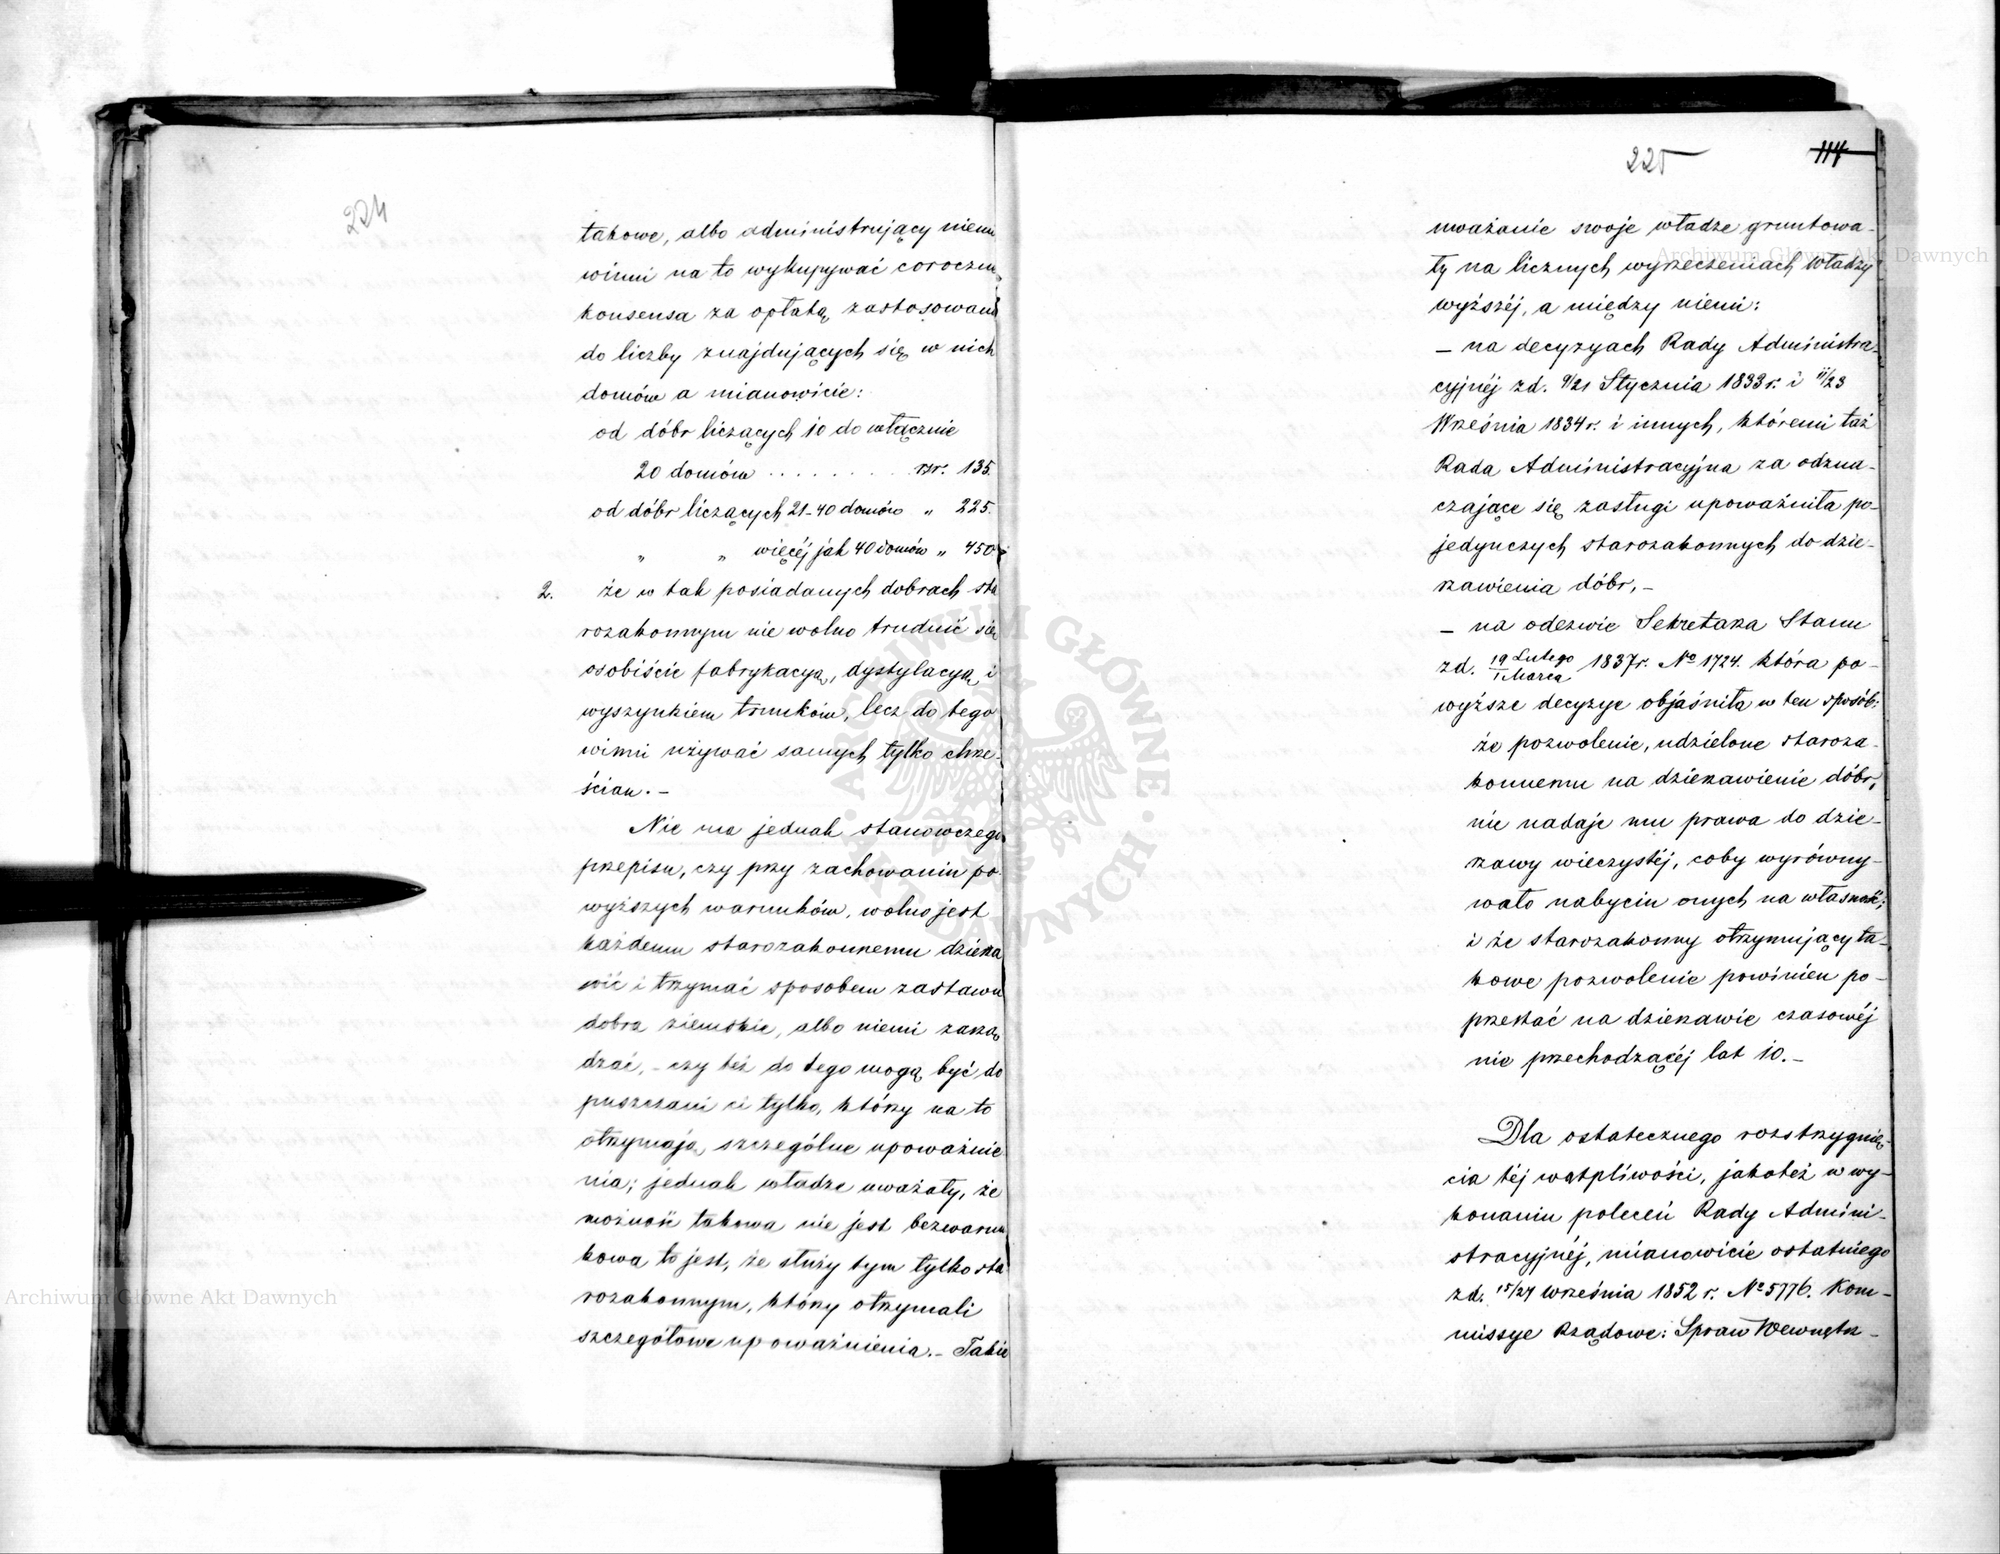 224
takowe, albo administrujący niemi
winni na to wykupywać coroczne
konsensa za opłatą zastosowaną
do liczby znajdujących się w nich
domów a mianowicie:
od dóbr liczących 10 do włącznie
20 domów . . . . . . . . . rsr. 135.
od dóbr liczących 21-40 domów „ 225.
„ „ więcéj jak 40 domów „ 450
2. że w tak posiadanych dobrach sta
rozakonnym nie wolno trudnić się
osobiście fabrykacyą, dystylacyą i
wyszynkiem trunków, lecz do tego
winni używać samych tylko chrze-
ścian. –
Nie ma jednak stanowczego
przepisu, czy przy zachowaniu po-
wyższych warunków, wolno jest
każdemu starozakonnemu dzierża
wić i trzymać sposobem zastawu
dobra ziemskie, albo niemi zarzą
dzać, – czy téż do tego mogą być do
puszczani ci tylko, którzy na to
otrzymają szczególne upoważnie
nia; jednak władze uważały, że
możność takowa nie jest bezwarun
kowa to jest, że służy tym tylko sta
rozakonnym, którzy otrzymali
szczegółowe upoważnienia. – Takie
225
114
uważanie swoje władze gruntowa-
ły na licznych wyrzeczeniach Władzy
wyższéj, a między niemi:
– na decyzyach Rady Administra-
cyjnéj zd. 9/21 Stycznia 1833 r. i 11/23
Września 1834 r. i innych, któremi taż
Rada Administracyjna za odzna-
czające się zasługi upoważniła po-
jedynczych starozakonnych do dzier-
żawienia dóbr, –
– na odezwie Sekretarza Stanu
zd. 19 Lutego/1 Marca 1837 r. Nº 1724. która po-
wyższe decyzye objaśniła w ten sposób:
że pozwolenie, udzielone staroza-
konnemu na dzierżawienie dóbr,
nie nadaje mu prawa do dzier-
żawy wieczystéj, coby wyrówny-
wało nabyciu onych na własność;
i że starozakonny otrzymujący ta-
kowe pozwolenie powinien po-
przestać na dzierżawie czasowéj
nie przechodzącéj lat 10. –
Dla ostatecznego rozstrzygnię-
cia téj wątpliwości, jakotéż w wy-
konaniu poleceń Rady Admini-
stracyjnéj, mianowicie ostatniego
zd. 15/27 września 1852 r. Nº 5776. Kom-
missye Rządowe: Spraw Wewnętrz-
ARCHIWUM GŁÓWNE AKT DAWNYCH
Archiwum Główne Akt Dawnych
Archiwum Główne Akt Dawnych